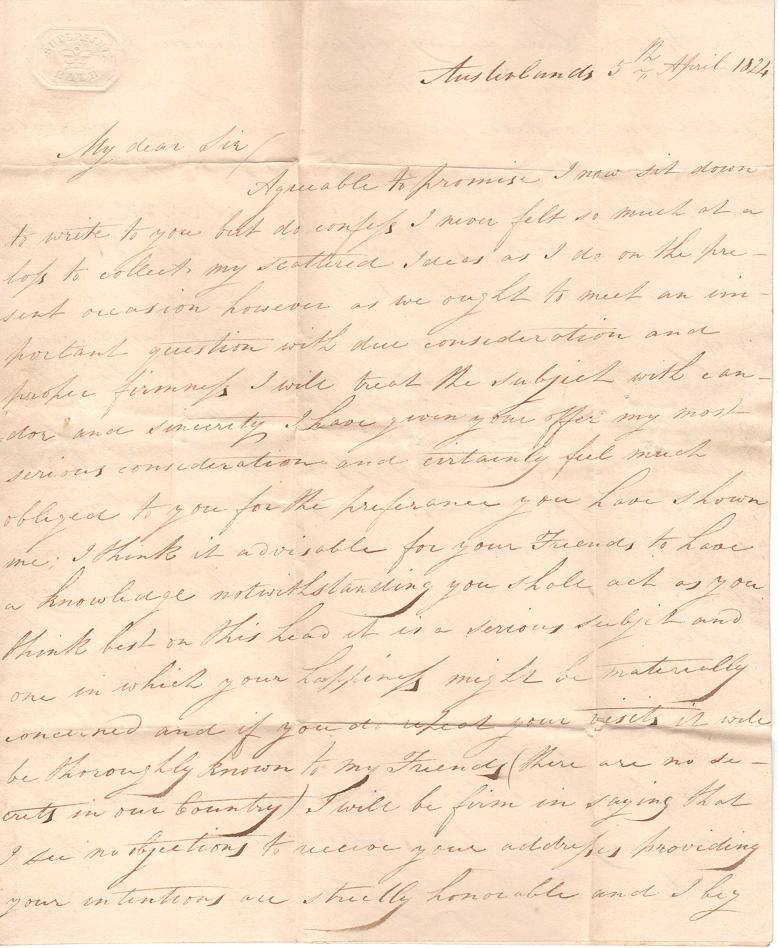 SUPERFINE
BATH
Austerlands 5th April 1824
My dear Sir/
Agreeable to promise I now sit down
to write to you but do confess I never felt so much at a
loss to collect my scattered Ideas as I do on the pre-
sent occasion however as we ought to meet an im-
portant question with due consideration and
proper firmness I will treat the subject with can-
dor and sincerity I have given your offer my most
serious consideration and certainly feel much
obliged to you for the preferance you have shown
me; I think it advisable for your Friends to have
a knowledge notwithstanding you shall act as you
think best on this head it is a serious subject and
one in which your happiness might be materially
concerned and if you do repeat your visits it will
be thoroughly known to my Friends (there are no se-
crets in our Country) I will be firm in saying that
I see no objections to receive your addresses providing
your intentions are strictly honorable and I beg